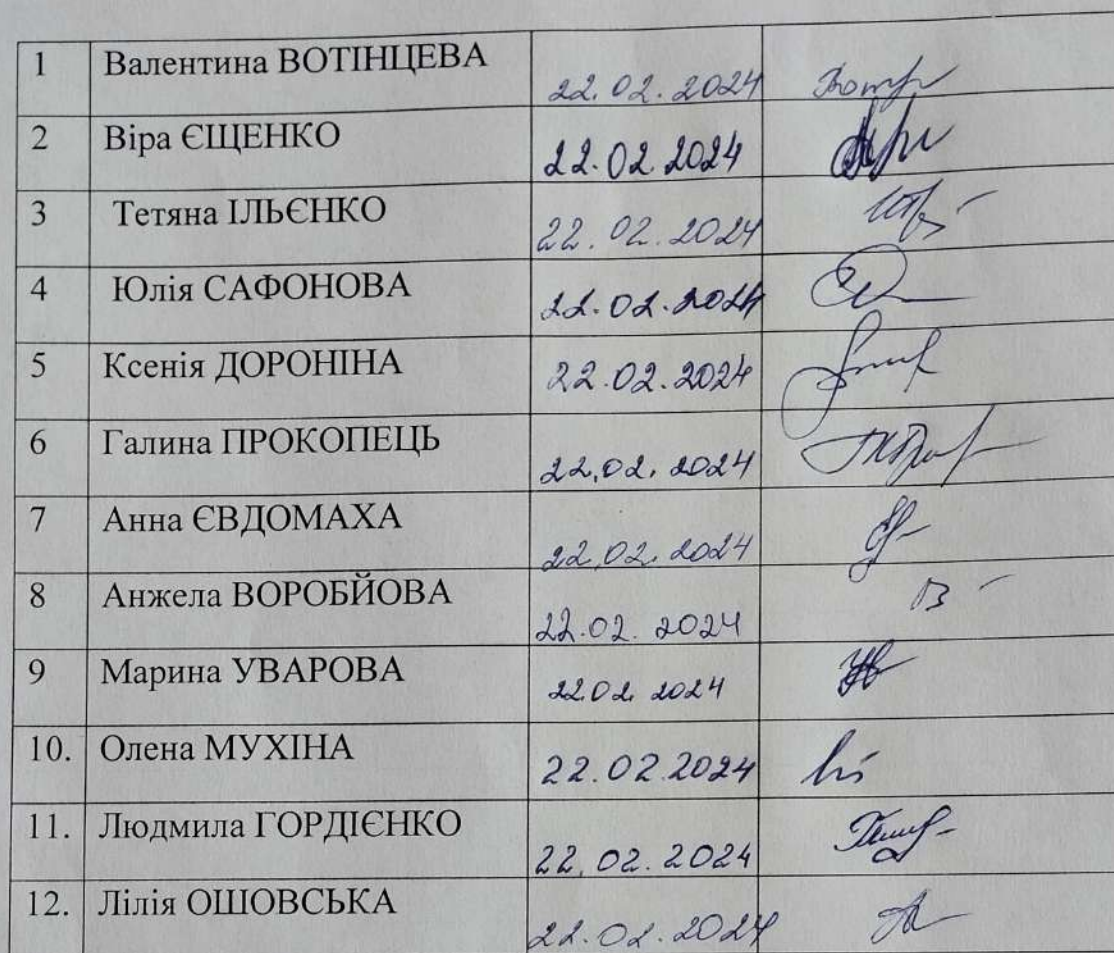 1 Валентина ВОТІНЦЕВА 22.02.2024
2 Віра ЄЩЕНКО 22.02.2024
3 Тетяна ІЛЬЄНКО 22.02.2024
4 Юлія САФОНОВА 22.02.2024
5 Ксенія ДОРОНІНА 22.02.2024
6 Галина ПРОКОПЕЦЬ 22.02.2024
7 Анна ЄВДОМАХА 22.02.2024
8 Анжела ВОРОБЙОВА 22.02.2024
9 Марина УВАРОВА 22.02.2024
10. Олена МУХІНА 22.02.2024
11. Людмила ГОРДІЄНКО 22.02.2024
12. Лілія ОШОВСЬКА 22.02.2024